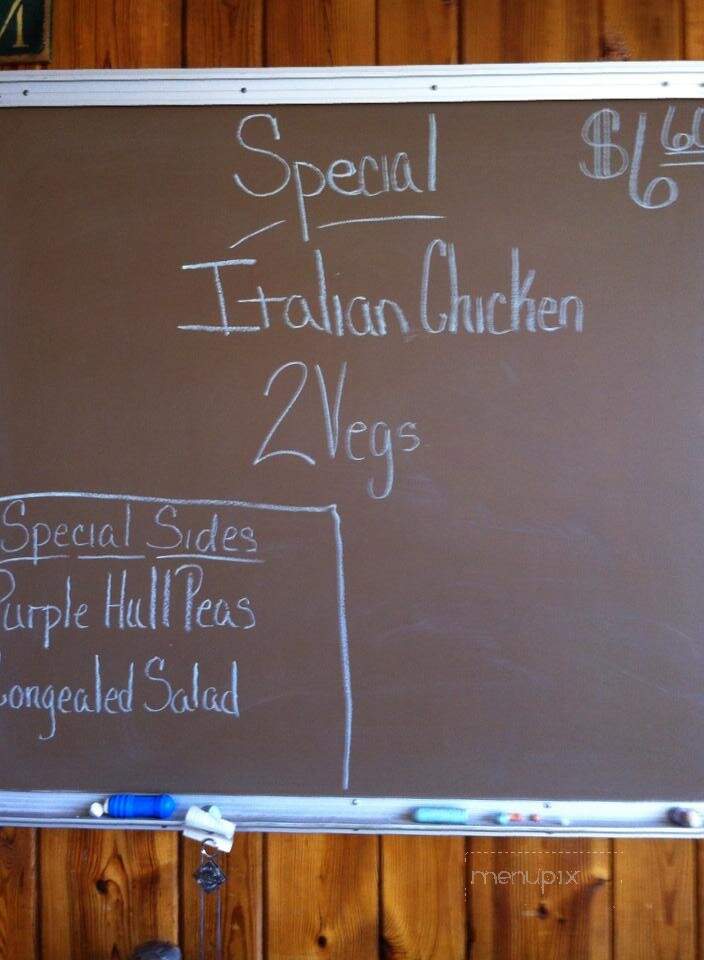 Special
$6 60
Italian Chicken
2 Vegs
Special Sides
Purple Hull Peas
Congealed Salad
menupix